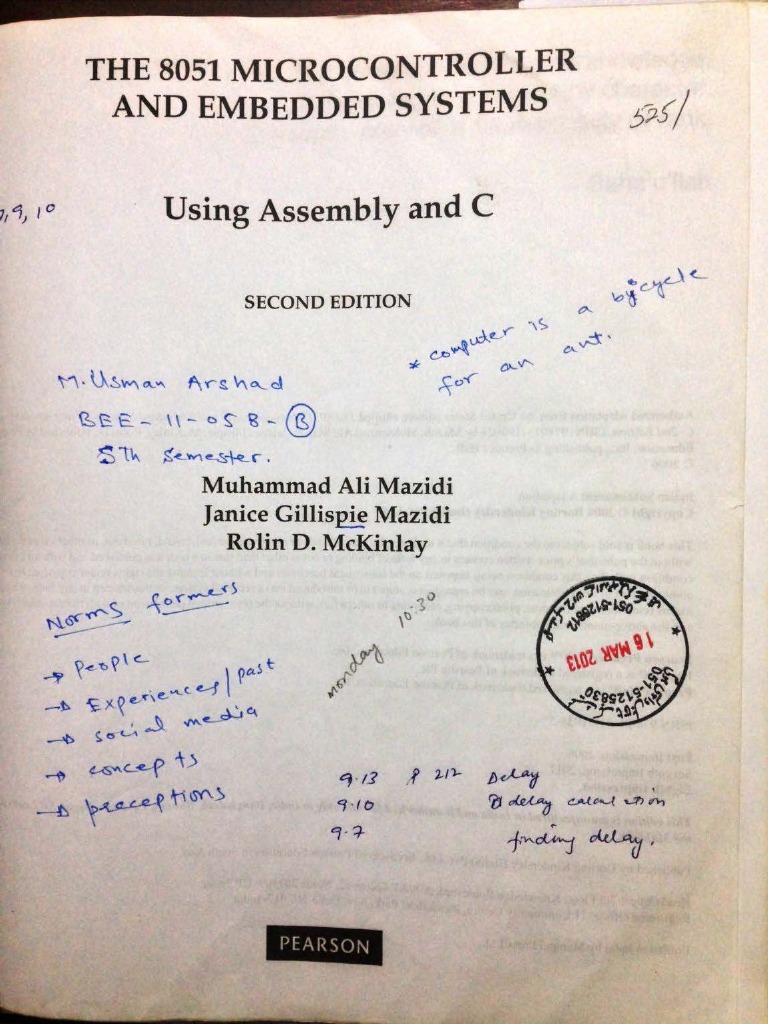 THE 8051 MICROCONTROLLER
AND EMBEDDED SYSTEMS
525/
9, 10
Using Assembly and C
SECOND EDITION
* computer is a bycycle
for an ant.
M. Usman Arshad
BEE-11-058-B
5th semester.
Muhammad Ali Mazidi
Janice Gillispie Mazidi
Rolin D. McKinlay
Norms formers
→ People
→ Experiences/past
→ social media
→ concepts
→ preceptions
monday 10:30
051-5125812
16 MAR 2013
051-5125830
9.13 P 212 Delay
9.10 delay calculation
9.7 finding delay.
PEARSON